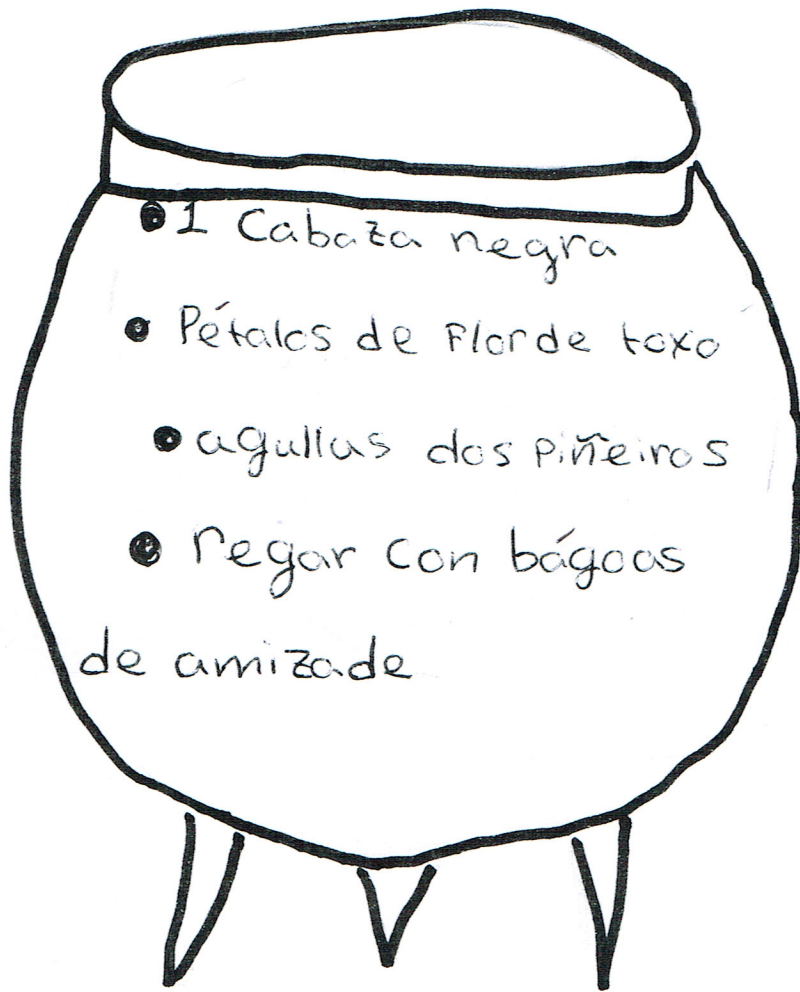 • 1 Cabaza negra
• Pétalos de Flor de toxo
• agullas dos piñeiros
• regar con bágoas
de amizade